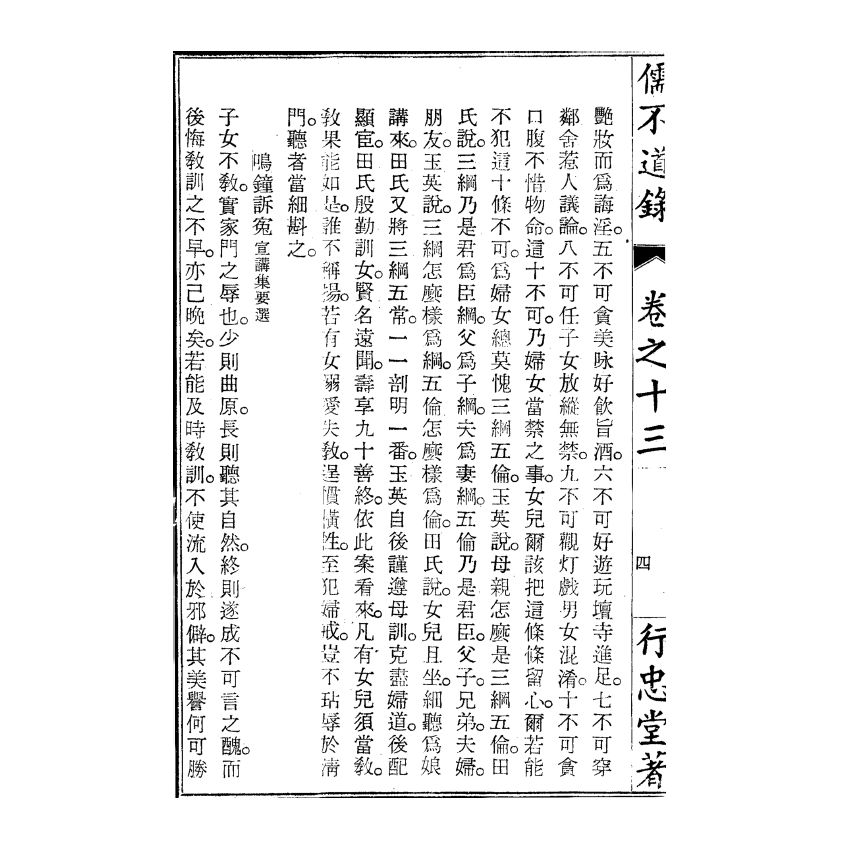 儒不道錄 卷之十三 四 行忠堂著
艷妝而爲誨淫。五不可貪美味好飮旨酒。六不可好遊玩壇寺進足。七不可穿
鄰舍惹人議論。八不可任子女放縱無禁。九不可觀灯戲男女混淆。十不可貪
口腹不惜物命。這十不可。乃婦女當禁之事。女兒爾該把這條條留心。爾若能
不犯這十條不可。爲婦女總莫愧三綱五倫。玉英說。母親怎麼是三綱五倫。田
氏說。三綱乃是君爲臣綱。父爲子綱。夫爲妻綱。五倫乃是君臣。父子。兄弟。夫婦。
朋友。玉英說。三綱怎麼樣爲綱。五倫怎麼樣爲倫。田氏說。女兒且坐。細聽爲娘
講來。田氏又將三綱五常。一一剖明一番。玉英自後謹遵母訓。克盡婦道。後配
顯宦。田氏殷勤訓女。賢名遠聞。壽享九十善終。依此案看來。凡有女兒須當敎。
敎果能如是。誰不稱揚。若有女溺愛失敎。逞慣橫性。至犯婦戒。豈不玷辱於淸
門。聽者當細斟之。
鳴鐘訴寃 宣講集要選
子女不敎。實家門之辱也。少則曲原。長則聽其自然。終則遂成不可言之醜。而
後悔敎訓之不早。亦已晚矣。若能及時敎訓。不使流入於邪僻。其美譽何可勝